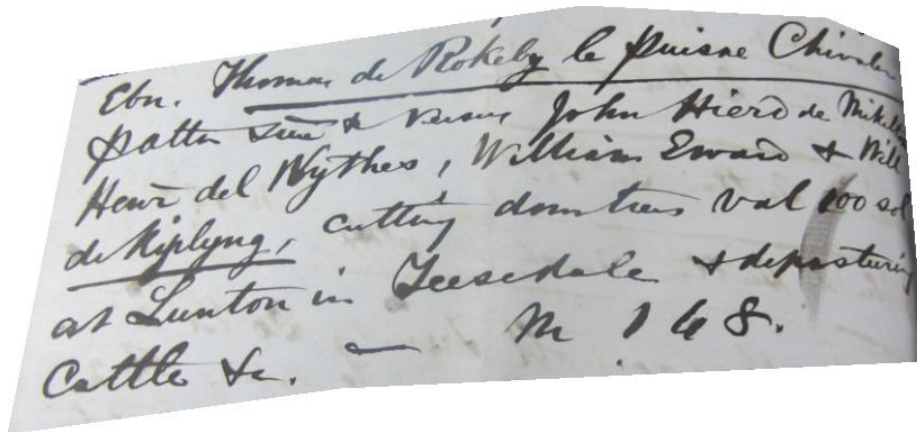 Ebn. Thomas de Rokeby le puisne Chivaler
John Hierd de
Henr del Wythes, William Eward & Will
de Kiplyng, cutting down trees val 100 sol
at Lunton in Teesedale & depasturing
Cattle &c. — m 148.